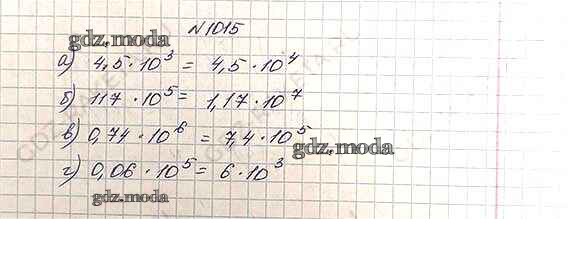 N 1015
gdz.moda
а) 4,5 · 10³ = 4,5 · 10⁴
б) 117 · 10⁵ = 1,17 · 10⁷
в) 0,74 · 10⁶ = 7,4 · 10⁵
gdz.moda
г) 0,06 · 10⁵ = 6 · 10³
gdz.moda